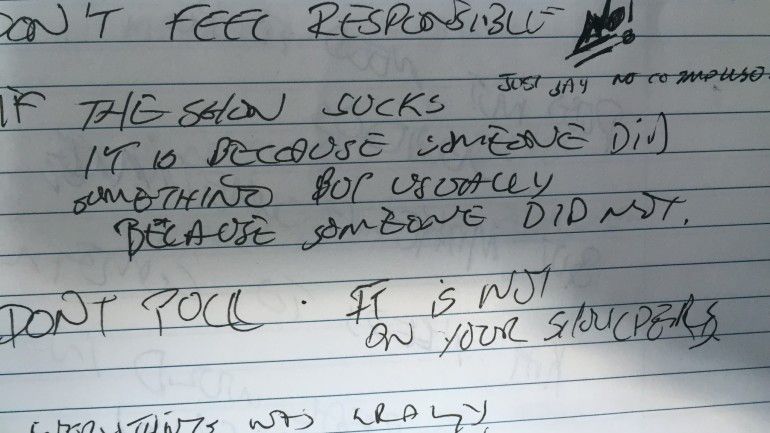 DON'T FEEL RESPONSIBLE NO!
JUST SAY NO
IF THE SHOW SUCKS
IT IS BECAUSE SOMEONE DID
SOMETHING BUT USUALLY
BECAUSE SOMEONE DID NOT.
DONT . IT IS NOT
ON YOUR SHOULDERS
EVERYTHING WAS CRAZY